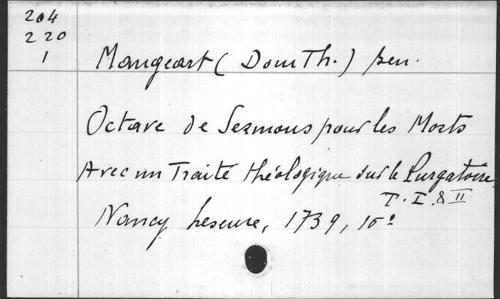 204
220
1
Mangeart (Dom Th.) ben.
Octave de Sermons pour les Morts
Avec un Traité théologique sur le Purgatoire
T. I. & II
Nancy Leseure, 1739, 10º